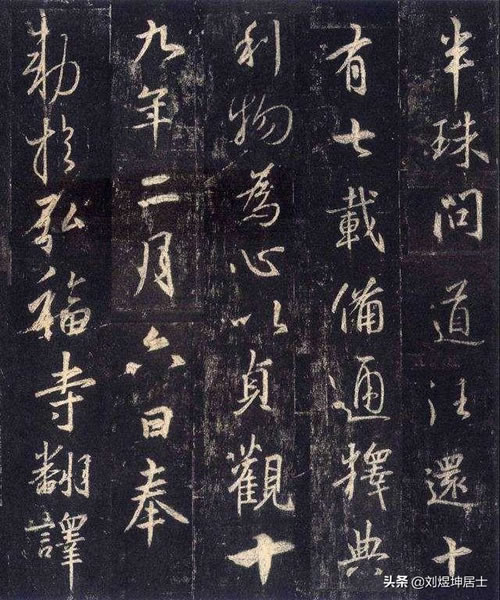 半珠問道往還十
有七載備通釋典
利物為心以貞觀十
九年二月六日奉
勅於弘福寺翻譯
头条 @刘煜坤居士